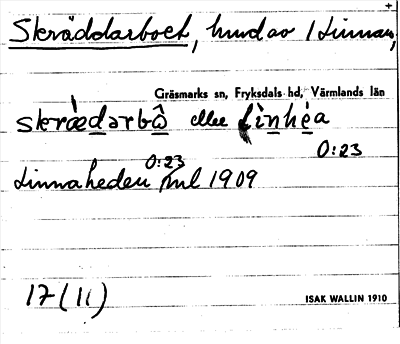 Skräddarboet, hmd av 1 Linnan,
Gräsmarks sn, Fryksdals hd, Värmlands län
skræ̀dərbω̂ eller lìnhéa
0:23
0:23
Linnaheden jml 1909
17 (11)
ISAK WALLIN 1910